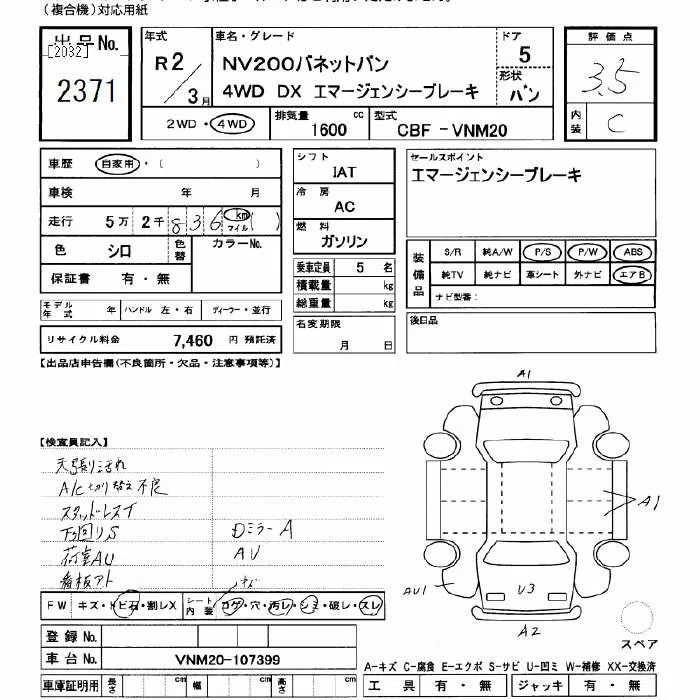 (複合機)対応用紙
出品No. [2032] 2371
年式 R2/3月
車名・グレード
NV200バネットバン
4WD DX エマージェンシーブレーキ
ドア 5
形状 バン
評価点 3.5
内装 C
2WD・4WD
排気量 1600 cc
型式 CBF-VNM20
車歴 自家用・( )
車検 年 月
走行 5万 2千 8 3 6 km マイル ( )
色 シロ 色替 カラーNo.
保証書 有・無
シフト IAT
冷房 AC
燃料 ガソリン
乗車定員 5 名
積載量 kg
総重量 kg
セールスポイント
エマージェンシーブレーキ
装備品 S/R 純A/W P/S P/W ABS
純TV 純ナビ 革シート 外ナビ エアB
ナビ型番:
モデル年式 年 ハンドル 左・右 ディーラー・並行
リサイクル料金 7,460 円 預託済
名変期限 月 日
後日品
【出品店申告欄(不良箇所・欠品・注意事項等)】
【検査員記入】
天張り汚れ
A/C切り替え不良
スタッドレス
下回りS
荷室AU
看板アト
DミラーA
AU
A1
A1
AU1
U3
A2
スペア
FW キズ・トビ石・割レX
シート内装 コゲ・穴・汚レ・シミ・破レ・スレ
登録No.
車台No. VNM20-107399
車庫証明用 長さ cm 幅 cm 高さ cm
A-キズ C-腐食 E-エクボ S-サビ U-凹ミ W-補修 XX-交換済
工具 有・無 ジャッキ 有・無